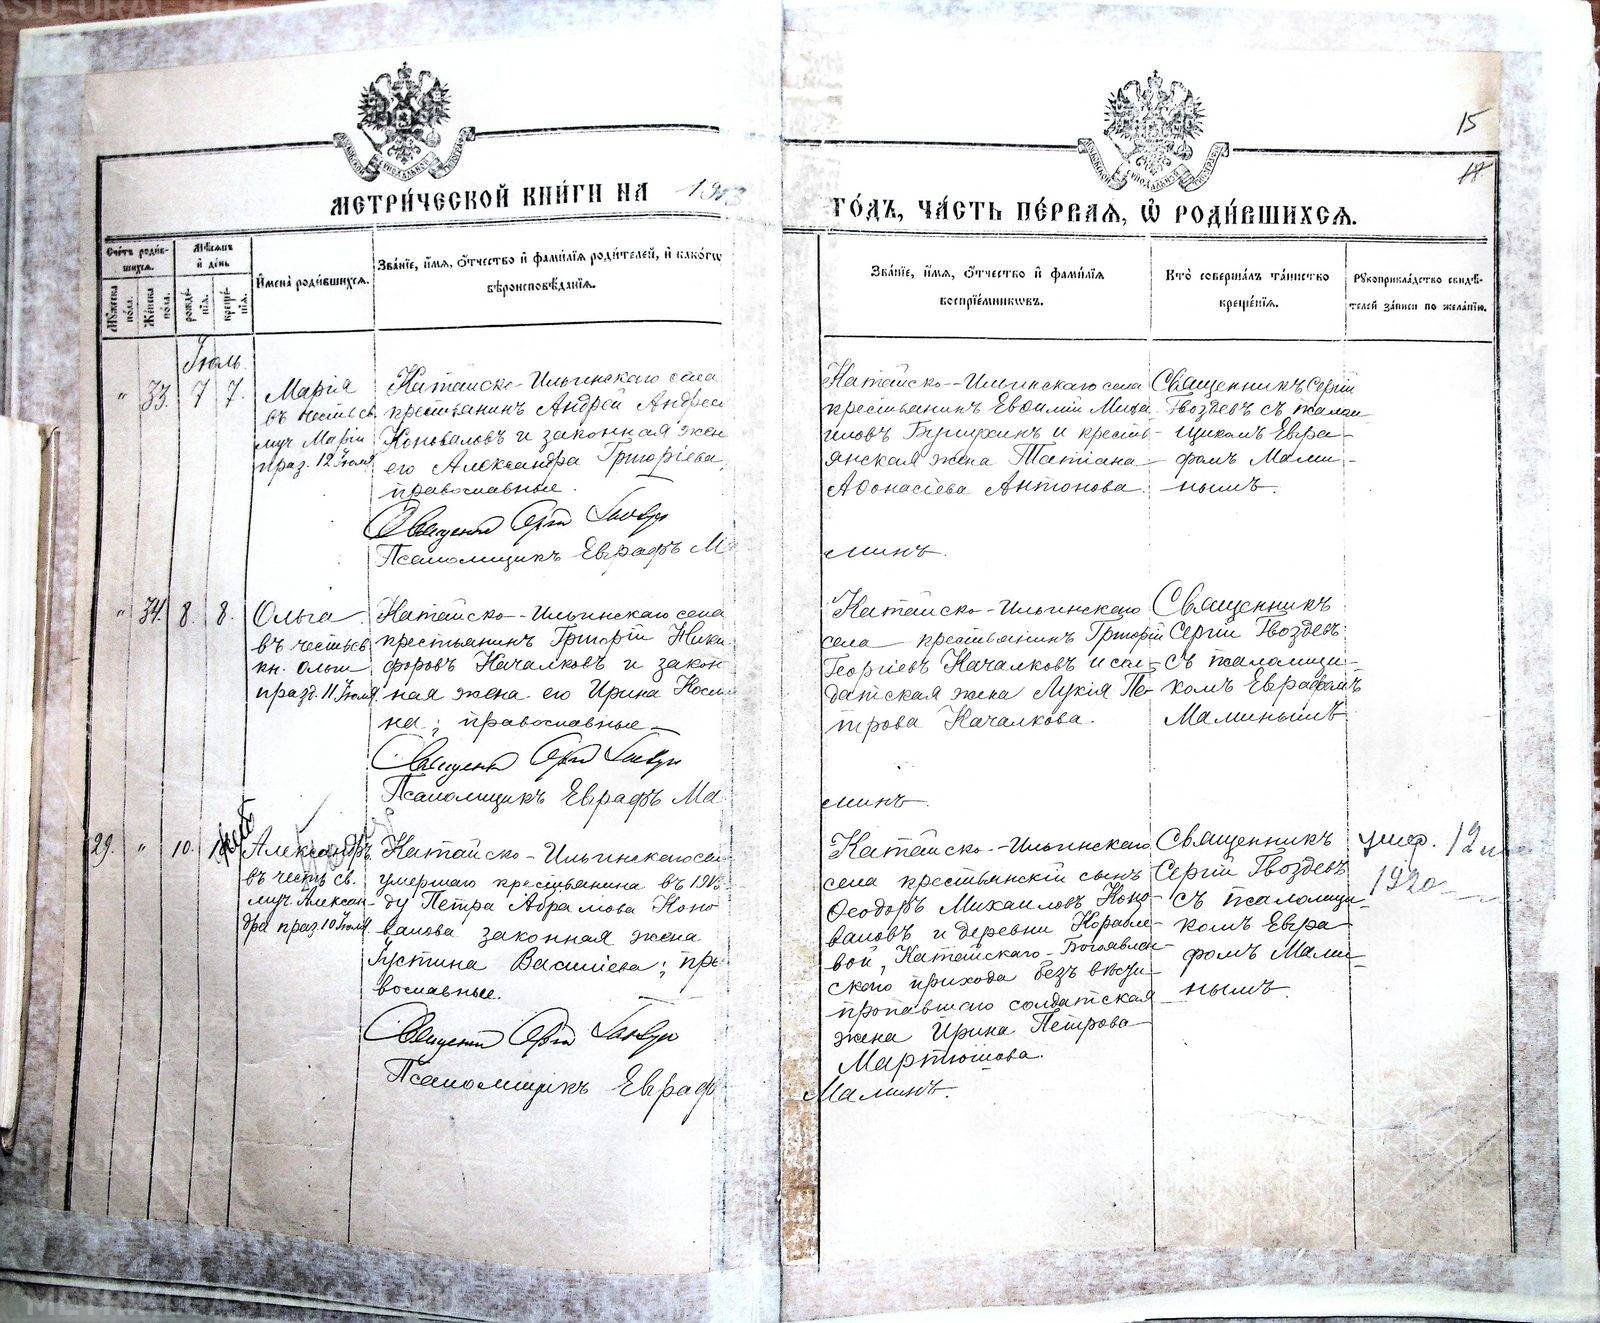 15
18
МЕТРИ́ЧЕСКОЙ КНИ́ГИ НА
ГО́ДЪ, ЧА́СТЬ ПЕ́РВАЯ, Ѡ҆ РОДИ́ВШИХСЯ.
Сче́тъ роди́в-
шихся.
Мѣ́сяцъ
и҆ де́нь
Му́жеска по́ла.
Же́нска по́ла.
рожде́-
нїя.
креще́-
нїя.
И҆мена̀ роди́вшихся.
Зва́нїе, и҆́мя, ѻ҆́тчество и҆ фамѝлїя роди́телей, и҆ како́гѡ
вѣроисповѣ́данїя.
Зва́нїе, и҆́мя, ѻ҆́тчество и҆ фами́лїя
воспрїе́мниковъ.
Кто̀ соверша́лъ та́инство
креще́нїя.
Рꙋкоприкла́дство свидѣ́-
телей за́писи по жела́нїю.
Іюль
" 33. 7 7.
Марія
въ честь св.
муч. Маріи
праз. 12 Іюля
Катайско-Ильинскаго села
крестьянинъ Андрей Андрее
Коноваловъ и законная жен
его Александра Григоріева,
православные.
Священник Сергій Гвоздев
Псаломщикъ Евграфъ Ма
Катайско-Ильинскаго села
крестьянинъ Евѳимій Миха
иловъ и кресть-
янская жена Татіана
Аѳонасіева Антонова.
минъ.
Священникъ Сергій
Гвоздевъ съ псалом
щикомъ Евгра-
фомъ Мами-
нымъ.
" 34. 8. 8.
Ольга
въ честь св.
кн. Ольги
празд. 11 Іюля
Катайско-Ильинскаго села
крестьянинъ Григорій Ники
форовъ Качалковъ и закон
ная жена его Ирина Косьм
на; православные
Священник Сергій Гвоздев
Псаломщикъ Евграфъ Ма
Катайско-Ильинскаго
села крестьянинъ Григорій
Георгіевъ Качалковъ и сол-
датская жена Лукія Пе-
трова Качалкова.
минъ.
Священникъ
Сергій Гвоздевъ
съ псаломщи-
комъ Евграфомъ
Маминымъ
29. " 10. 10
Александръ
въ честь св.
муч. Алексан-
дра праз. 10 Іюля
Катайско-Ильинскаго се
умершаго крестьянина въ
ду Петра Абрамова Коно
валова законная жена
Іустина Васильева; пра
вославные.
Священник Сергій Гвоздев
Псаломщикъ Евграф
Катайско-Ильинскаго
села крестьянскій сынъ
Ѳеодоръ Михаиловъ Коно-
валовъ и деревни Корабле-
вой, Катайскаго-Богоявлен-
скаго прихода безъ вѣсти
пропавшаго солдатская
жена Ирина Петрова
Мартюшова.
Маминъ.
Священникъ
Сергій Гвоздевъ
съ псаломщи-
комъ Евгра-
фомъ Мами-
нымъ.
умер. 12
1920